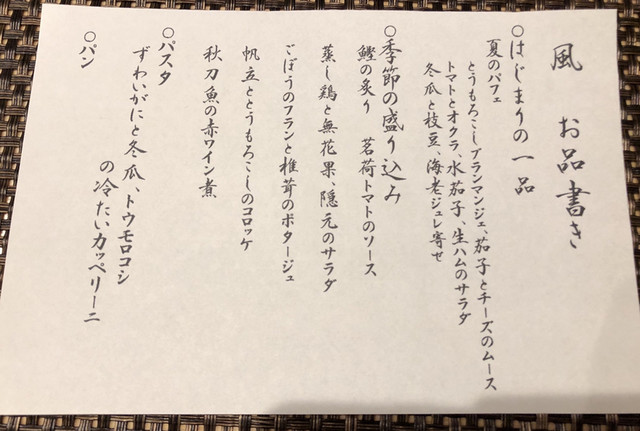 風　お品書き
○はじまりの一品
夏のパフェ
とうもろこしブランマンジェ、茄子とチーズのムース
トマトとオクラ、水茄子、生ハムのサラダ
冬瓜と枝豆、海老ジュレ寄せ
○季節の盛り込み
鰹の炙り　茗荷トマトのソース
蒸し鶏と無花果、隠元のサラダ
ごぼうのフランと椎茸のポタージュ
帆立ととうもろこしのコロッケ
秋刀魚の赤ワイン煮
○パスタ
ずわいがにと冬瓜、トウモロコシ
の冷たいカッペリーニ
○パン